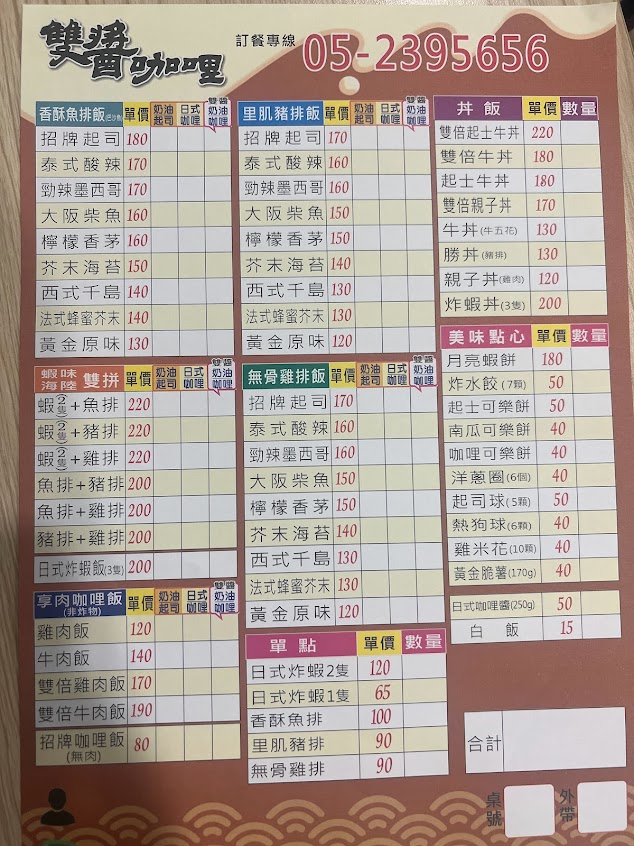 雙醬咖哩
訂餐專線 05-2395656
香酥魚排飯 單價 奶油起司 日式咖哩 雙醬奶油咖哩
招牌起司 180
泰式酸辣 170
勁辣墨西哥 170
大阪柴魚 160
檸檬香茅 160
芥末海苔 150
西式千島 140
法式蜂蜜芥末 140
黃金原味 130
蝦味海陸 雙拼 單價 奶油起司 日式咖哩 雙醬奶油咖哩
蝦(2隻)+魚排 220
蝦(2隻)+豬排 220
蝦(2隻)+雞排 220
魚排+豬排 200
魚排+雞排 200
豬排+雞排 200
日式炸蝦飯(3隻) 200
享肉咖哩飯(非炸物) 單價 奶油起司 日式咖哩 雙醬奶油咖哩
雞肉飯 120
牛肉飯 140
雙倍雞肉飯 170
雙倍牛肉飯 190
招牌咖哩飯(無肉) 80
里肌豬排飯 單價 奶油起司 日式咖哩 雙醬奶油咖哩
招牌起司 170
泰式酸辣 160
勁辣墨西哥 160
大阪柴魚 150
檸檬香茅 150
芥末海苔 140
西式千島 130
法式蜂蜜芥末 130
黃金原味 120
無骨雞排飯 單價 奶油起司 日式咖哩 雙醬奶油咖哩
招牌起司 170
泰式酸辣 160
勁辣墨西哥 160
大阪柴魚 150
檸檬香茅 150
芥末海苔 140
西式千島 130
法式蜂蜜芥末 130
黃金原味 120
單點 單價 數量
日式炸蝦2隻 120
日式炸蝦1隻 65
香酥魚排 100
里肌豬排 90
無骨雞排 90
丼飯 單價 數量
雙倍起士牛丼 220
雙倍牛丼 180
起士牛丼 180
雙倍親子丼 170
牛丼(牛五花) 130
勝丼(豬排) 130
親子丼(雞肉) 120
炸蝦丼(3隻) 200
美味點心 單價 數量
月亮蝦餅 180
炸水餃(7顆) 50
起士可樂餅 50
南瓜可樂餅 40
咖哩可樂餅 40
洋蔥圈(6個) 40
起司球(5顆) 50
熱狗球(6顆) 40
雞米花(10顆) 40
黃金脆薯(170g) 40
日式咖哩醬(250g) 50
白飯 15
合計
桌號
外帶